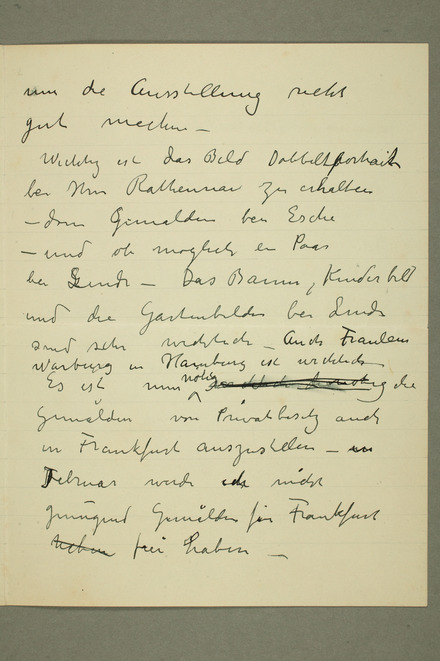 um die Ausstellung recht
gut machen –
Wichtig ist das Bild Dobbeltportrait
bei Hrn Rathenau zu erhalten
– dem Gemälden bei Esche
– und ob möglich ein Paar
bei Linde – Das Baum, Kinderbild
und die Gartenbilder bei Linde
sind sehr wichtich – Auch Fraulein
Warburg in Hamburg ist wichtich
Es ist nun nötig die
Gemälden von Privatbesitz auch
in Frankfurt auszustellen –
Februar werde ich nicht
genugend Gemälden für Frankfurt
frei haben –